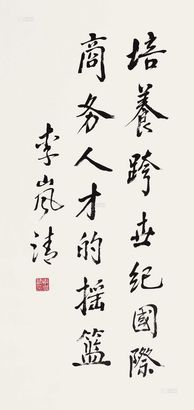 培養跨世紀國際
商务人才的摇籃
李岚清